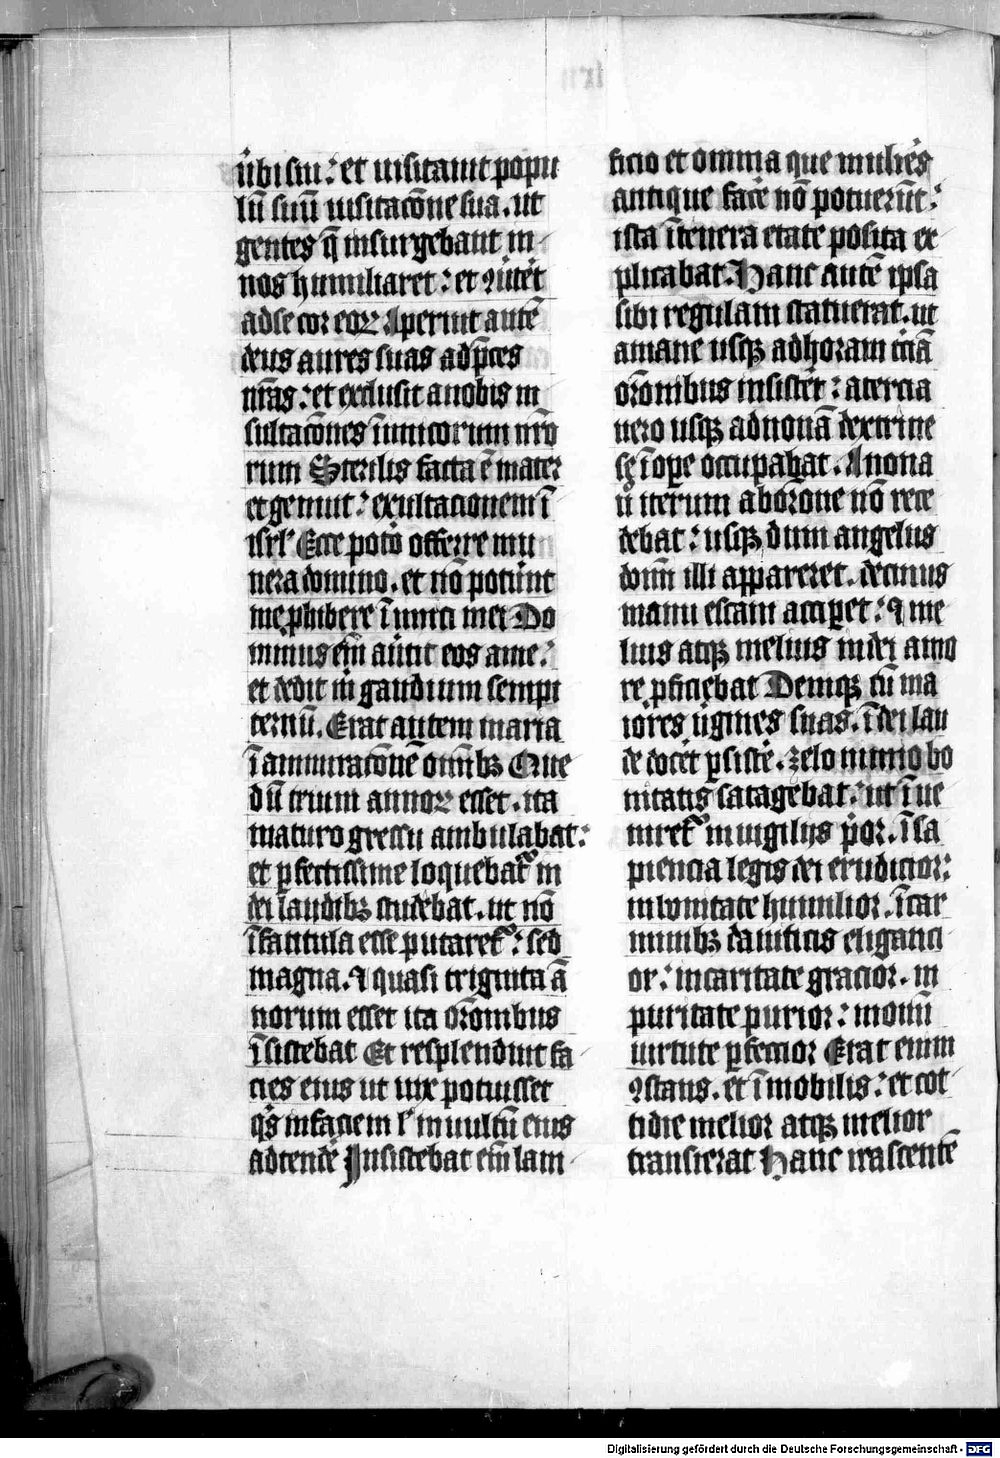 v̓bi sui : et uisitauit popu
lū suū uisitacōne sua . ut
gentes q̄ insurgebant in
nos humiliaret : et ꝯuͥtēt
ad se cor eoꝝ Aperuit autē
deus aures suas ad p̄ces
nr̄as : et exclusit a nobis in
sultacōnes īimicorum nr̄o
rum Sterilis facta ē mater
et genuit : exultacionem ī
isrl̓ Ecce poto̓ offerre mu
nera domino . et nō potūnt
me ꝓhibere īimici mei Do
minus em̄ aūtit eos a me :
et dedit in gaudium sempi
ternū . Erat autem maria
ī ammiracōne omīb⁊ Que
dū trium annoꝝ esset . ita
maturo gressu ambulabat :
et ꝑfectissime loquebat᷑ in
dei laudib⁊ studebat . ut nō
īfantula esse putaret᷑ : sed
magna . ⁊ quasi triginta ā
norum esset ita or̄onibus
īsistebat Et resplenduit fa
cies eius ut uix potuisset
qͥs in faciem l̓ in uultū eius
adtende̓ Insistebat em̄ lani
ficio et omnia que mulie̓s
antique face̓ nō potuerūt :
ista ī tenera etate posita ex
plicabat . Hanc autē ipsa
sibi regulam statuerat . ut
a mane usqꝫ ad horam tciā
or̄onibus insistēt : a tercia
uero usqꝫ ad nonā dextrine
sꝫ ī oꝑe occupabat . A nona
ů iterum ab or̄one nō rece
debat : usqꝫ dum angelus
domī illi appareret . de cuius
manu escam acciꝑet : ⁊ me
lius atqꝫ melius in dei amo
re ꝓficiebat Deniqꝫ cū ma
iores u̓gines suas . ī dei lau
de docēt ꝑsiste̓ . zelo nimio bo
nitatis satagebat : ut īue
niret᷑ in uigilijs p̓or . ī sa
piencia legis dei erudicior :
in bonitate humilior . ī car
minib⁊ dauiticis eliganci
or : in caritate gracior . in
puritate purior : in omī
uirtute ꝑfectior Erat enim
ꝯstans . et īmobilis : et cot
tidie melior atqꝫ melior
transierat Hanc irascentē
Digitalisierung gefördert durch die Deutsche Forschungsgemeinschaft - DFG